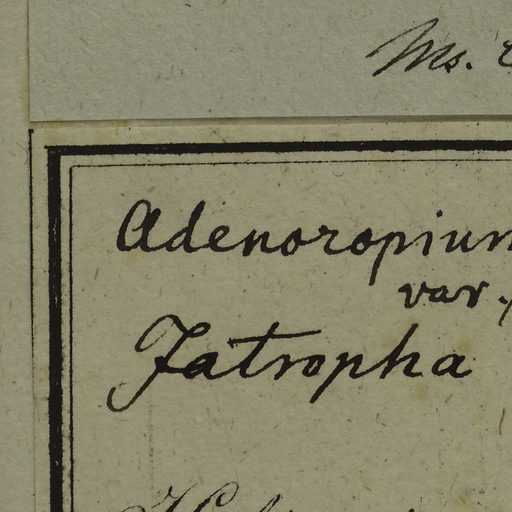 Ms.
Adenoropium
var.
Jatropha